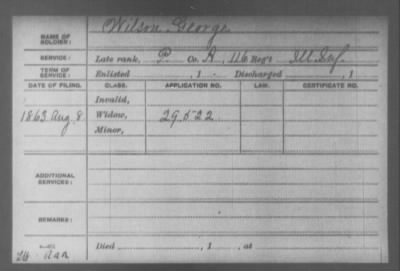 NAME OF SOLDIER: Wilson, George
SERVICE: Late rank, P. Co. A, 116 Reg't Ill. Inf.
TERM OF SERVICE: Enlisted , 1 Discharged , 1
DATE OF FILING. CLASS. APPLICATION NO. LAW. CERTIFICATE NO.
Invalid,
1863 Aug. 8 Widow, 29.522
Minor,
ADDITIONAL SERVICES:
REMARKS:
Died , 1 , at